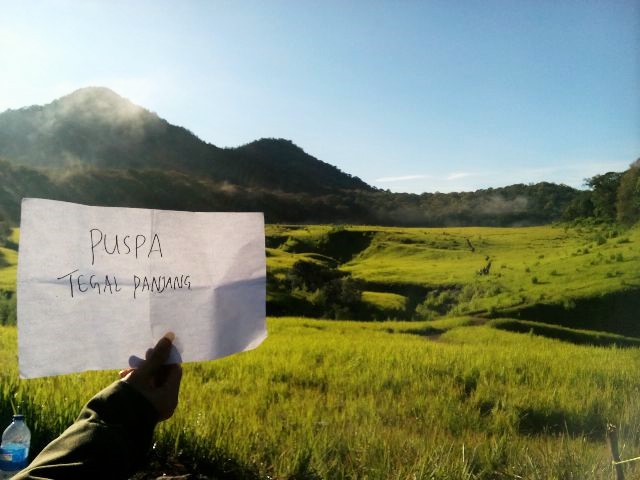 PUSPA
TEGAL PANJANG